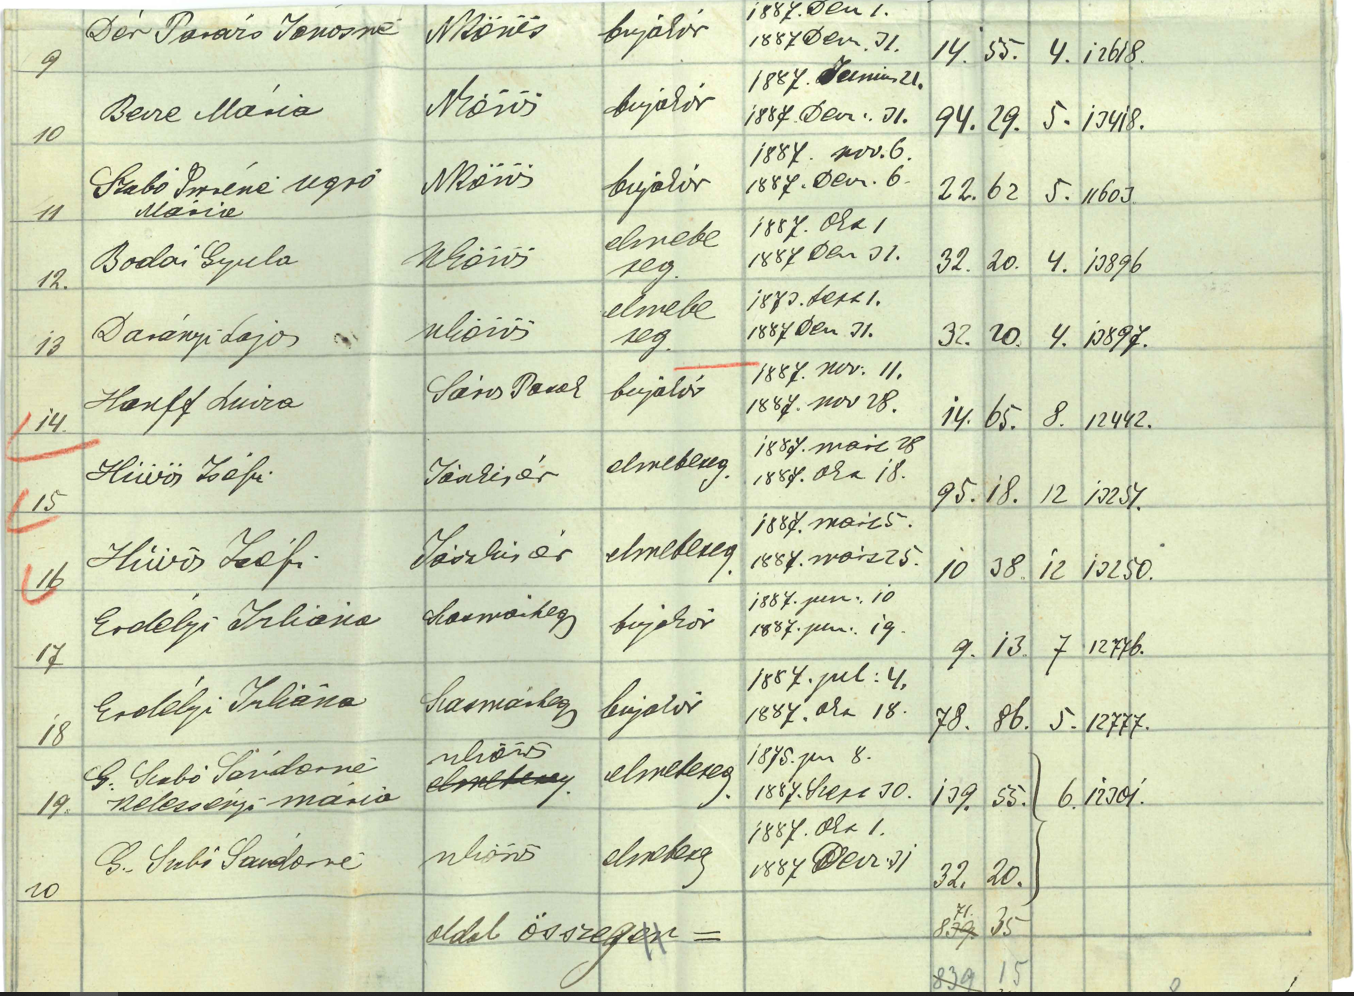 1887. Dec 1.
9 Dér Pararó Jánosné NKőrös bujakór 1887 Decz. 31. 14. 55. 4. 12618.
1887. Junius 21.
10 Bere Mária NKőrös bujakór 1887. Decz. 31. 94. 29. 5. 13418.
1887. nov. 6.
11 Szabó ugró NKőrös bujakór 1887. Decz. 6. 22. 62 5. 11603
Mária
elmebe 1887. Okt 1
12. Bodai Gyula NKőrös seg. 1887 Dec 31. 32. 20. 4. 13896
elmebe 1873. 1.
13 Darányi Lajos NKőrös seg. 1887 Dec 31. 32. 20. 4. 13897.
1887. nov. 11.
14. Hanff Luiza Sáros Patak bujakór 1887. nov 28. 14. 65. 8. 12442.
1887. márc 28
15 Hüvös Zsófi Jászkisér elmebeteg. 1887. Okt 18. 95. 18. 12 13251.
1887. márc 5.
16 Hüvös Zsófi Jászkisér elmebeteg. 1887. márc 25. 10 38. 12 13250.
1887. jun. 10
17 Erdélyi Juliána bujakór 1887. jun. 19. 9. 13. 7 12776.
1887. jul. 4.
18 Erdélyi Juliána bujakór 1887. Okt 18. 78. 86. 5. 12777.
G. Szabó Sándorné NKőrös 1875. jun 8.
19. mária elmebeteg. elmebeteg. 1887. Szept 30. 139. 55. 6. 12301.
1887. Okt 1.
20 G. Szabó Sándorné NKőrös elmebeteg 1887 Decz. 31 32. 20.
71.
oldal összegen = 839. 35
839 15